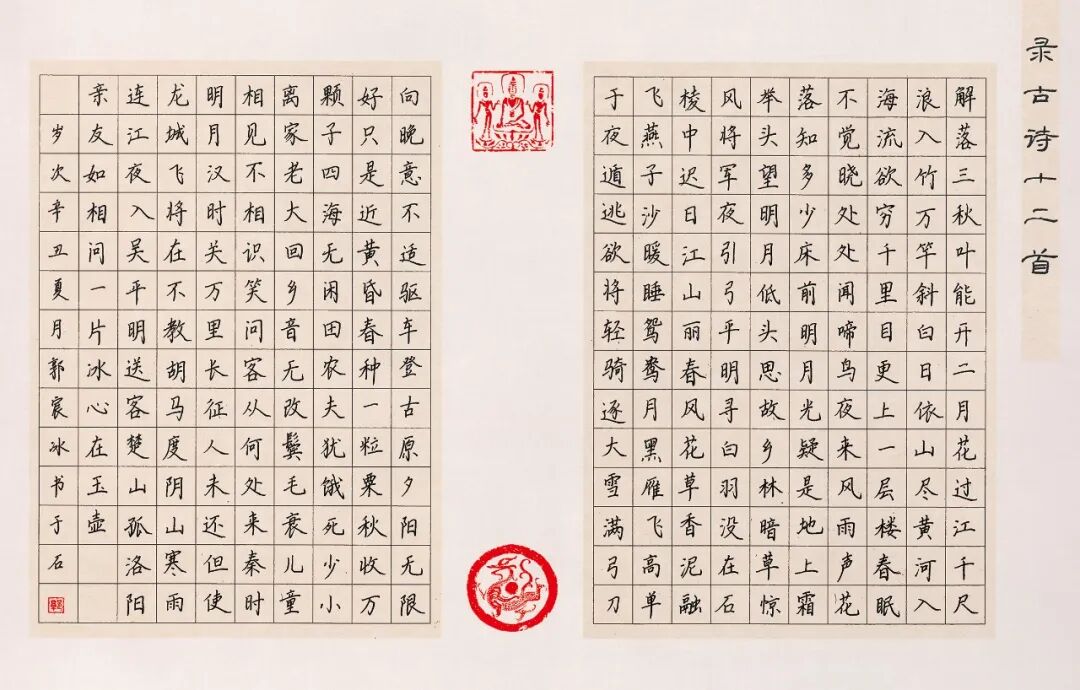 录古诗十二首
解落三秋叶能开二月花过江千尺
浪入竹万竿斜白日依山尽黄河入
海流欲穷千里目更上一层楼春眠
不觉晓处处闻啼鸟夜来风雨声花
落知多少床前明月光疑是地上霜
举头望明月低头思故乡林暗草惊
风将军夜引弓平明寻白羽没在石
棱中迟日江山丽春风花草香泥融
飞燕子沙暖睡鸳鸯月黑雁飞高单
于夜遁逃欲将轻骑逐大雪满弓刀
向晚意不适驱车登古原夕阳无限
好只是近黄昏春种一粒粟秋收万
颗子四海无闲田农夫犹饿死少小
离家老大回乡音无改鬓毛衰儿童
相见不相识笑问客从何处来秦时
明月汉时关万里长征人未还但使
龙城飞将在不教胡马度阴山寒雨
连江夜入吴平明送客楚山孤洛阳
亲友如相问一片冰心在玉壶
岁次辛丑夏月郭宸冰书于石